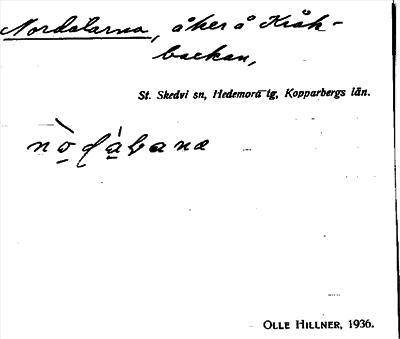 Nordalarna, åker å Kråk-
backan,
St. Skedvi sn, Hedemora tg, Kopparbergs län.
OLLE HILLNER, 1936.